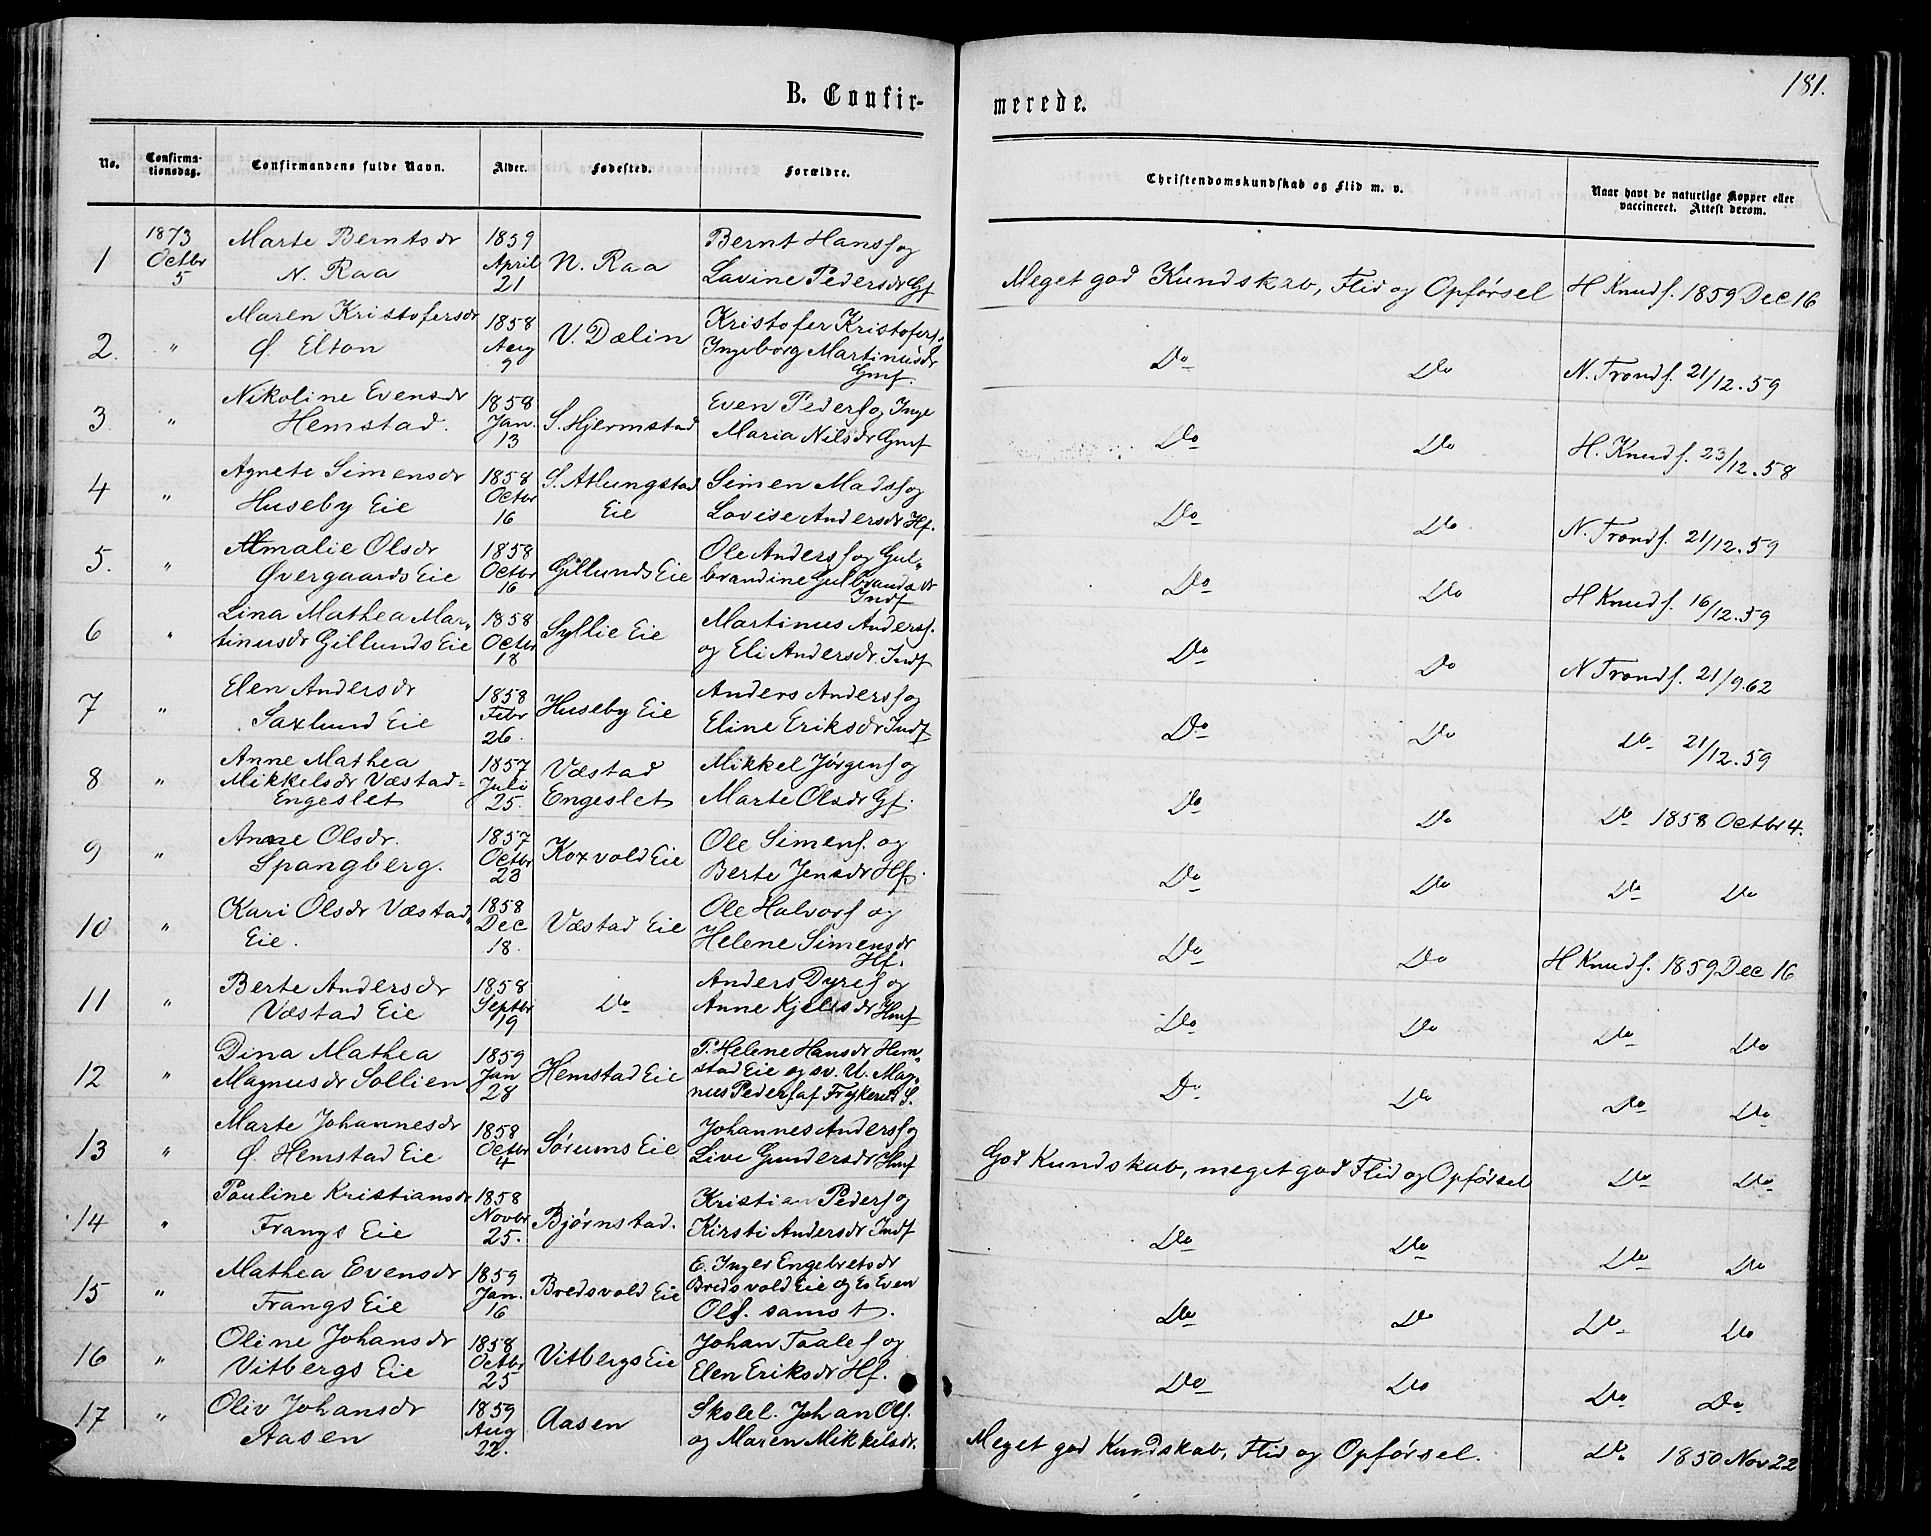 181.
B. Confir-
merede.
No.
Confirma-
tionsdag.
Confirmandens fulde Navn.
Alder.
Fødested.
Forældre.
Christendomskundskab og Flid m. v.
Naar havt de naturlige Kopper eller
vaccineret. Attest derom.
1 1873 Octbr 5 Marte Berntsdr N. Raa 1859 April 21 N. Raa Bernt Hansf og Lavine Pedersdr Gf Meget god Kundskab, Flid og Opførsel H Knudf. 1859 Dec 16
2. " Maren Kristofersdr Ø. Elton 1858 Aug 9 V. Dælin Kristofer Kristoferf. Ingeborg Martinusdr Gmf. Do Do N. Trondf. 21/12.59
3. " Nikoline Evensdr Hemstad. 1858 Jan. 13 S. Hjermstad Even Pederf og Inge Maria Nilsdr Gmf Do Do H. Knudf. 23/12.58
4 " Agnete Simensdr Huseby Eie 1858 Octbr 16 S. Atlungstad Eie Simen Madsf og Lovise Andersdr Hf. Do Do N. Trondf. 21/12.59
5. " Amalie Olsdr Øvergaards Eie 1858 Octbr 16 Gillunds Eie Ole Andersf og Gul„ brandine Gulbrandsdr Indf Do Do H Knudf. 16/12.59
6 " Lina Mathea Mar„ tinusdr Gillunds Eie 1858 Octbr 18 Syllie Eie Martinus Andersf. og Eli Andersdr. Indf Do Do N Trondf. 21/9.62
7 " Elen Andersdr Saxlund Eie 1858 Febr 26. Huseby Eie Anders Andersf og Eline Eriksdr Indf Do Do Do 21/12.59
8 " Anne Mathea Mikkelsdr Væstad= Engeslet 1857 Juli 25. Væstad Engeslet Mikkel Jørgenf og Marte Olsdr Gf. Do Do Do 1858 Octbr 4.
9 " Anne Olsdr. Spangberg. 1857 Octbr 23 Koxvold Eie Ole Simenf. og Berte Jensdr Hf. Do Do Do Do
10 " Kari Olsdr Væstad„ Eie. 1858 Dec 18. Væstad Eie Ole Halvorf og Helene Simensdr Hf. Do Do H Knudf. 1859 Dec 16
11 " Berte Andersdr Væstad Eie 1858 Septbr 19 Do Anders Dyref og Anne Kjelsdr Hmf Do Do Do Do
12 " Dina Mathea Magnusdr Sollien 1859 Jan 28 Hemstad Eie P. Helene Hansdr Hem„ stad Eie og sv. U. Mag„ nus Pederf af S. Do Do Do Do
13 " Marte Johannesdr Ø. Hemstad Eie 1858 Octbr 4 Sørums Eie Johannes Andersf og Live Gundersdr Hmf God Kundskab, meget god Flid og Opførsel Do Do
14 " Pauline Kristiansdr Frangs Eie 1858 Novbr 25. Bjørnstad. Kristian Pederf og Kirsti Andersdr Indf Do Do Do Do
15 " Mathea Evensdr Frangs Eie 1859 Jan. 16 Bredsvold Eie E. Inger Engebretsdr Bredsvold Eie og Es Even Olf. samst. Do Do Do Do
16 " Oline Johansdr Vitbergs Eie 1858 Octbr 25 Vitbergs Eie Johan Taalef og Elen Eriksdr Hf. Do Do Do Do
17 " Oliv Johansdr Aasen 1859 Aug 22. Aasen Skolel. Johan Olf. og Maren Mikkelsdr. Meget god Kundskab, Flid og Opførsel. Do 1850 Nov 22